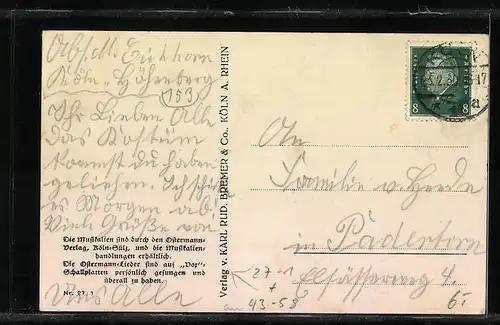 Abs. M. Eickhorn
Köln-Höhenberg
153
Ihr Lieben Alle
Das Kostüm
kannst du haben
geliehen. Ich schi
es Morgen ab!
Viele Grüße von
Die Musikalien sind durch den Ostermann-
Verlag, Köln-Sülz, und die Musikalien-
handlungen erhältlich.
Die Ostermann-Lieder sind auf „Vox"-
Schallplatten persönlich gesungen und
überall zu haben.
Nr. 27/1
Uns Alle
Verlag v. KARL RUD. BREMER & Co., KÖLN A. RHEIN
8 8
17
An
Familie v. Heede
in Paderborn
Elsässerweg 4.
27-1
+
43-58
6.